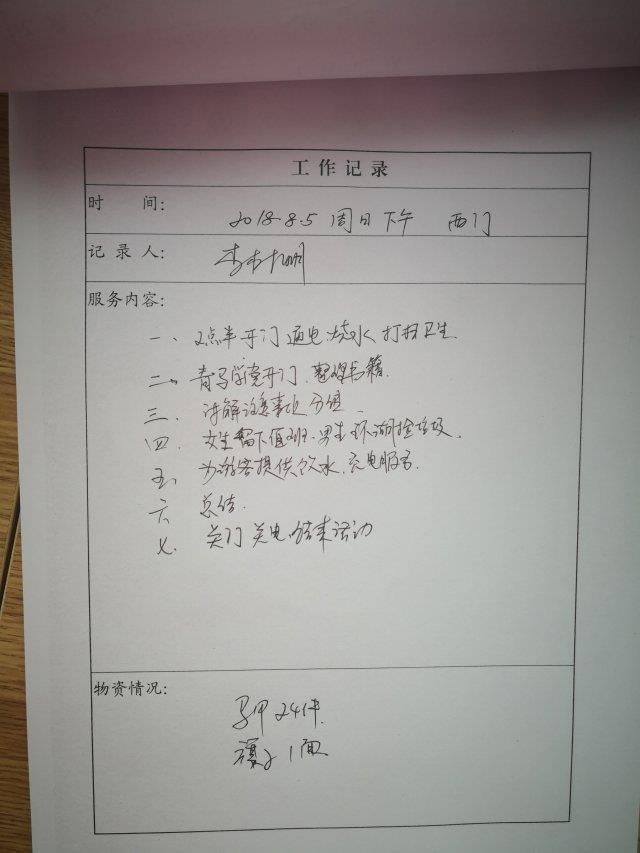 工作记录
时 间： 2018.8.5 周日下午 西门
记 录 人：
服务内容：
一、2点半开门 通电 烧水 打扫卫生.
二、青马学堂开门、整理书籍
三、讲解注意事项 分组
四、女生留下值班.男生环湖捡垃圾.
五、为游客提供饮水.充电服务.
六、总结.
七、关门 关电 结束活动
物资情况：
马甲24件.
旗子1面